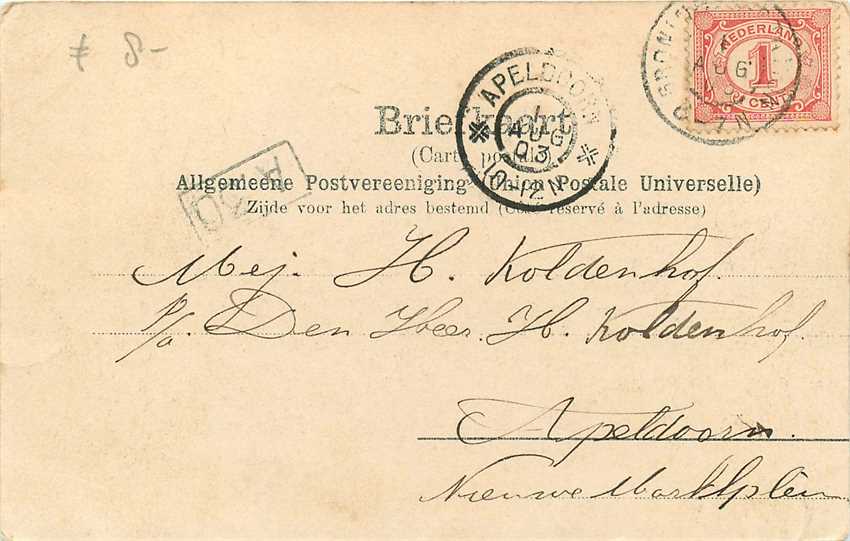 ƒ 8-
NEDERLAND
1
CENT
AUG
8-7N
APELDOORN
1
AUG
03
10-12N
Briefkaart
(Carte postale)
Allgemeene Postvereeniging (Union Postale Universelle)
Zijde voor het adres bestemd (Côté réservé à l'adresse)
Mej. H. Koldenhof.
P/a. Den Heer. H. Koldenhof.
Apeldoorn.
Nieuwe Marktplein